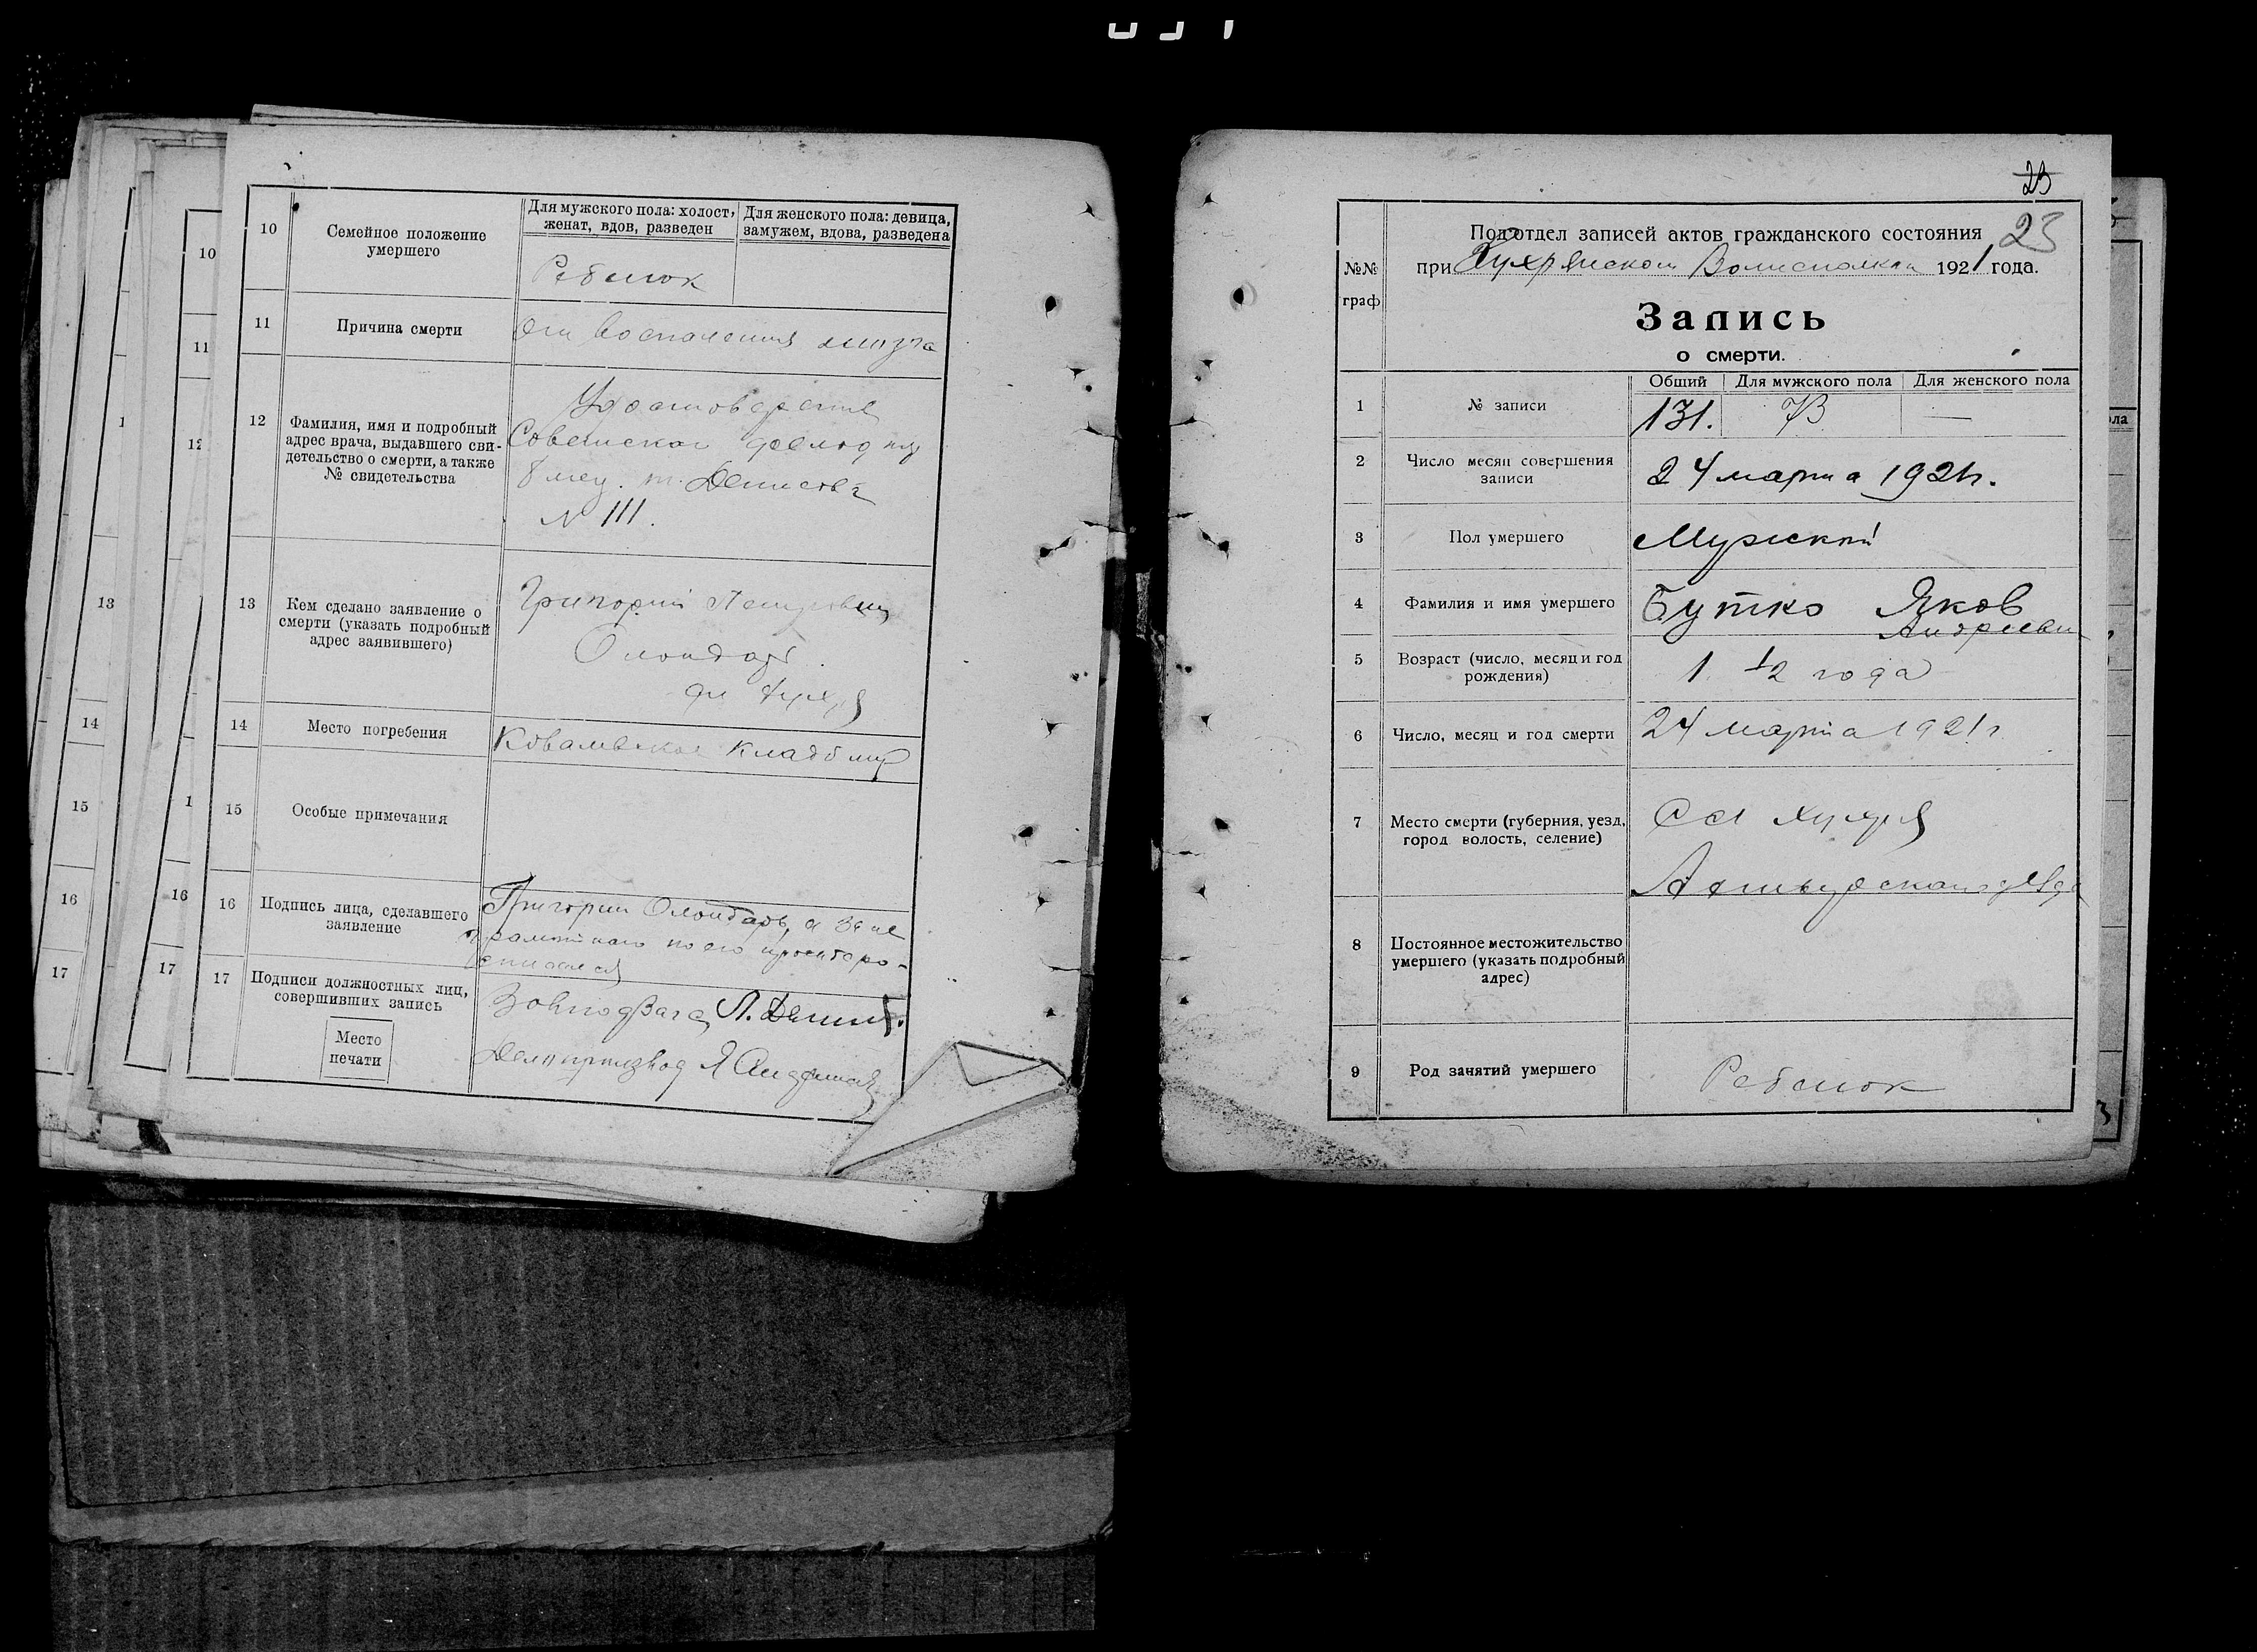 10
Семейное положение
умершего
Для мужского пола: холост,
женат, вдов, разведен
Для женского пола: девица,
замужем, вдова, разведена
Ребенок
11
Причина смерти
От воспаления
12
Фамилия, имя и подробный
адрес врача, выдавшего сви-
детельство о смерти, а также
№ свидетельства
Удостоверение
Советской
т. Денисова
№ 111.
13
Кем сделано заявление о
смерти (указать подробный
адрес заявившего)
Григорий
Олондарь
14
Место погребения
Ковалевское кладбище
15
Особые примечания
16
Подпись лица, сделавшего
заявление
Григорий Олондарь, а за не
грамотного по его просьбе ро-
списался
17
Подписи должностных лиц,
совершивших запись
Место
печати
Завподзагс Л.
Делопроизвод Я
10
11
12
1
16
17
1
13
14
15
16
17
23
23
№№
граф
Подотдел записей актов гражданского состояния
при Хухрянском Волисполком 1921 года.
Запись
о смерти.
1
№ записи
Общий
Для мужского пола
Для женского пола
131.
73
—
2
Число месяц совершения
записи
24 марта 1921г.
3
Пол умершего
Мужской
4
Фамилия и имя умершего
Бутко Яков
Андреевич
5
Возраст (число, месяц и год
рождения)
1 1/2 года
6
Число, месяц и год смерти
24 марта 1921г.
7
Место смерти (губерния, уезд,
город волость, селение)
Сел Хухря
Ахтырского уезда
8
Постоянное местожительство
умершего (указать подробный
адрес)
9
Род занятий умершего
Ребенок
ла
3